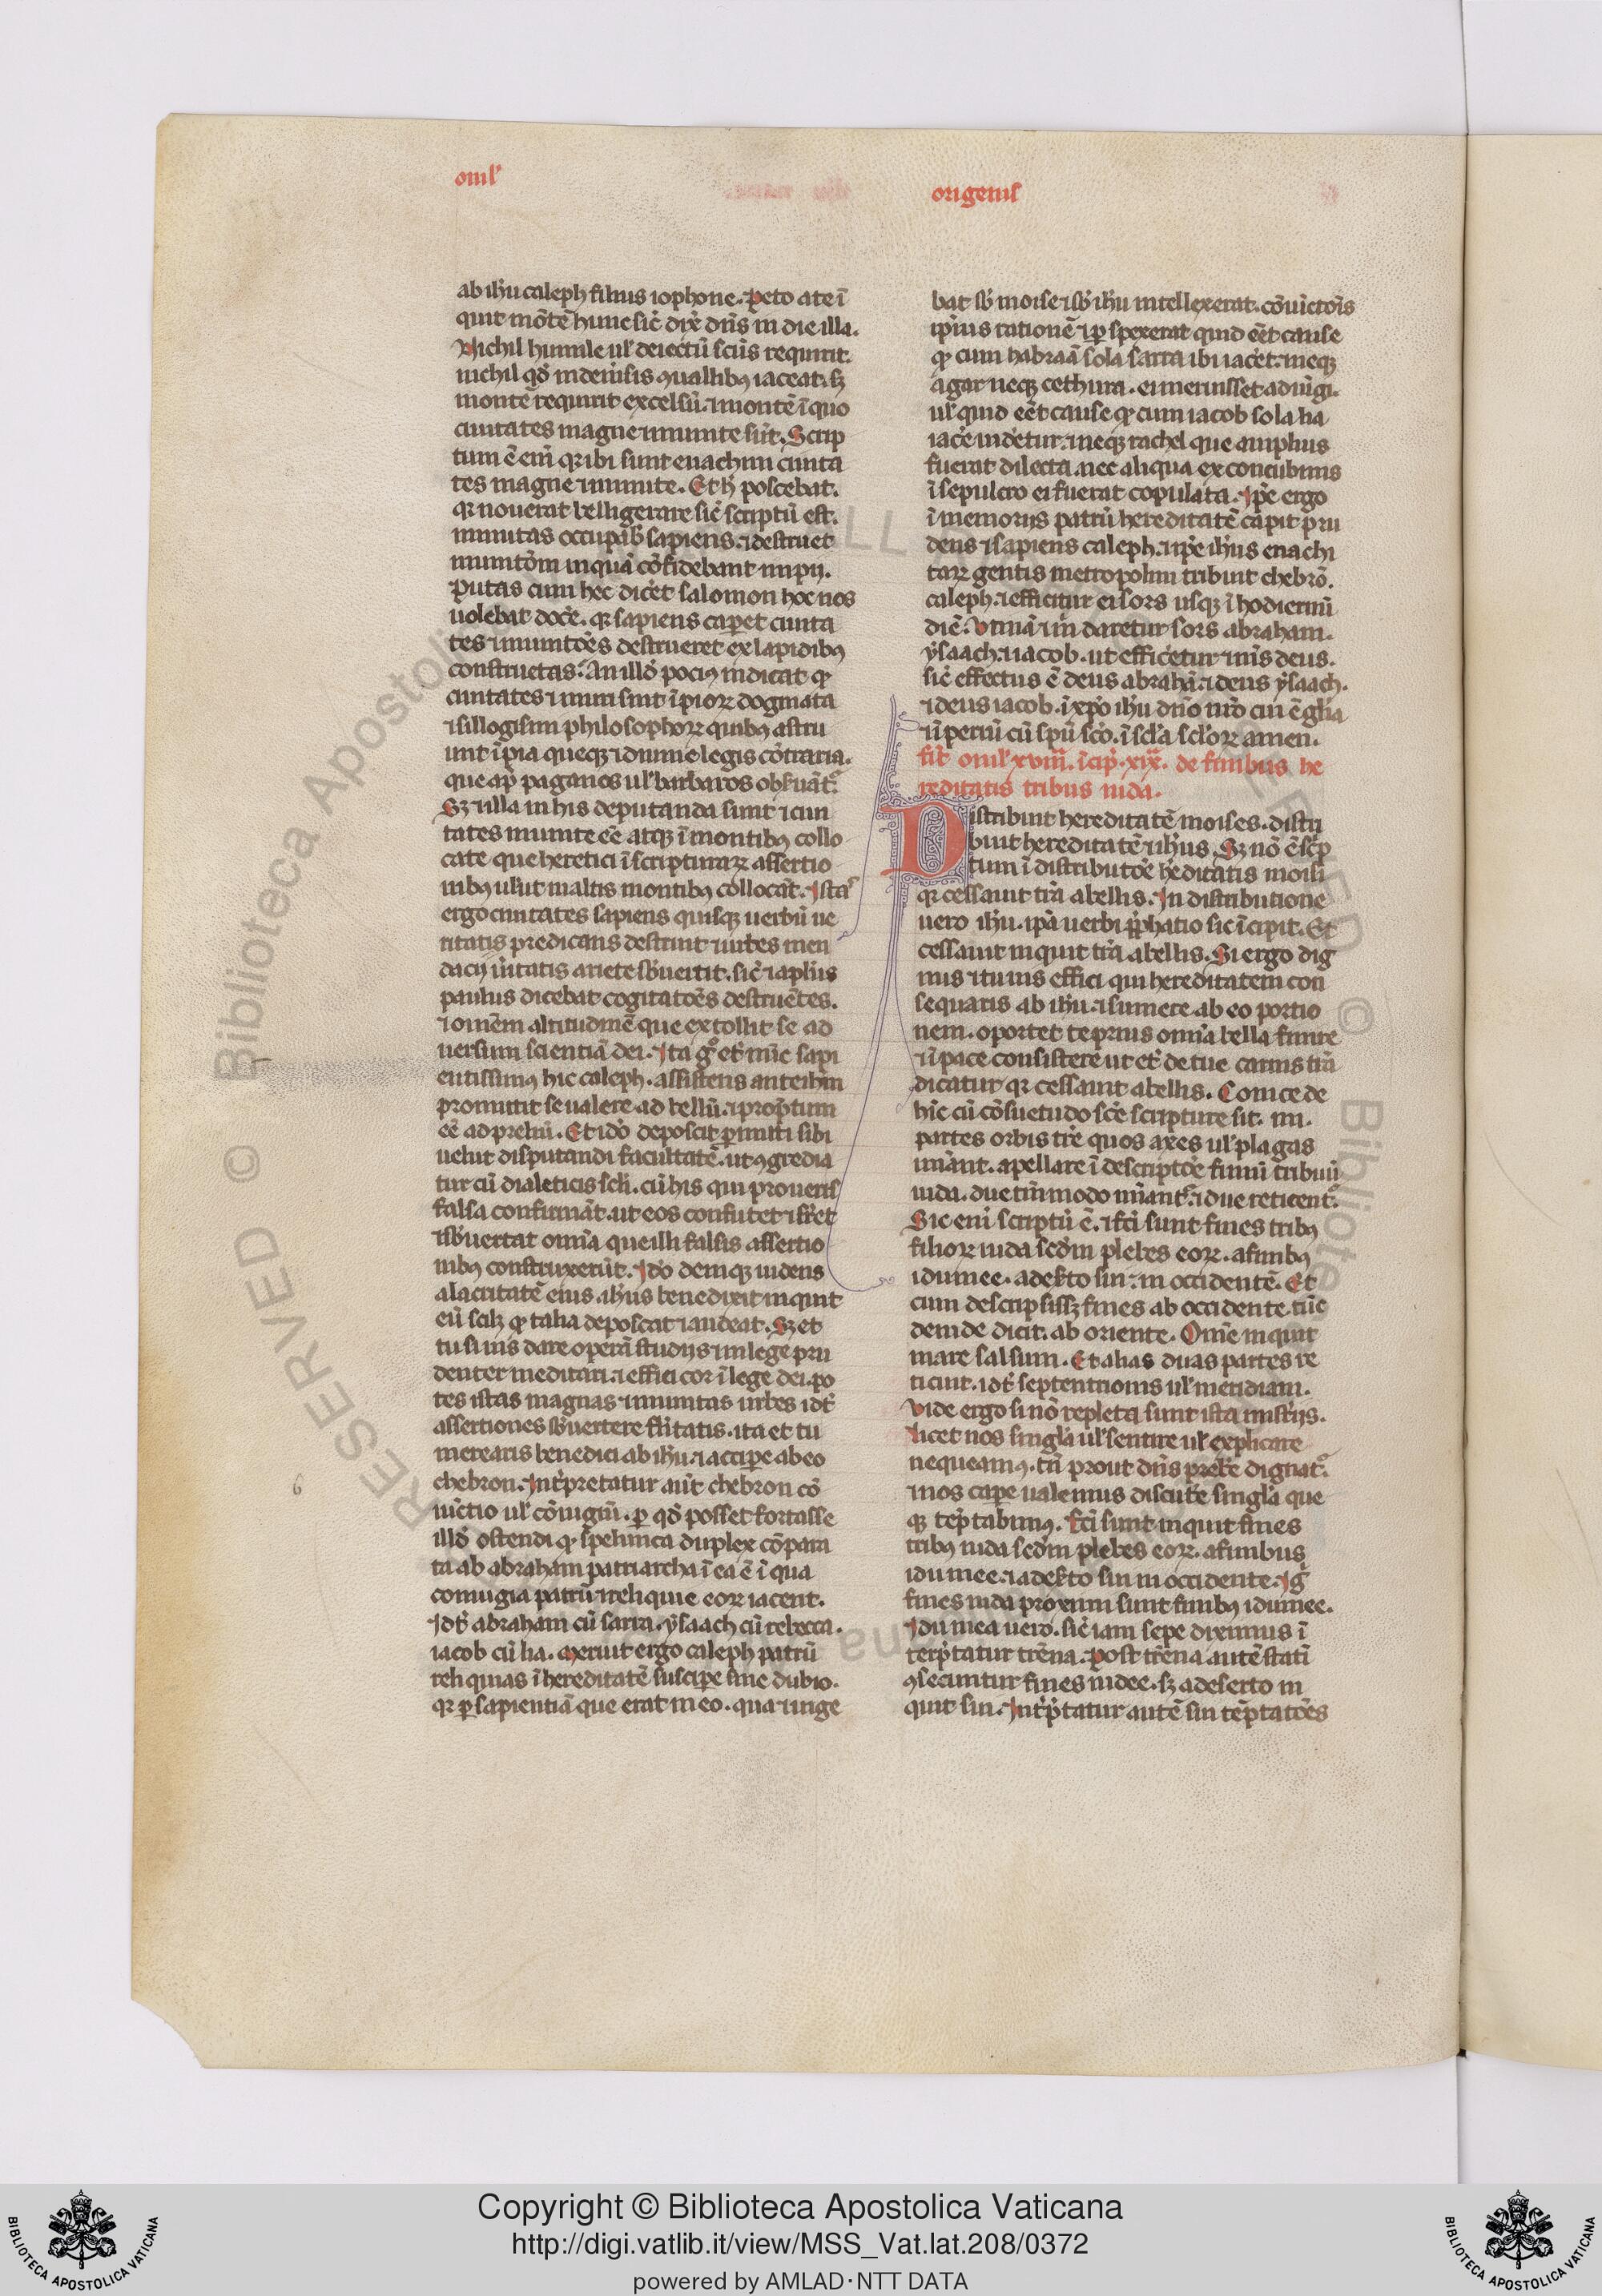 omlꝰ
origenis
ab ihu caleph filius iophone. Peto a te ī
quit mōtē hunc sic̄ dix̄ dn̄s in die illa.
Nichil humile ul̄ deiectū scūs requirit.
nichil qd̄ in demīsis ꝯuallibꝰ iaceat. sꝫ
montē requirit excelsū. ⁊ montē ī quo
ciuitates magne ⁊ munite sūt. Scrip
tum ē em̄ qꝛ ibi sunt enachim ciuita
tes magne ⁊ munite. Et h̄ poscebat.
qꝛ nouerat belligerare sic̄ scriptū est.
munitas occupab̄ sapiens. ⁊ destruet
munitōm in qua cōfidebant impij.
Putas cum hec dic̄et salomon hoc nos
uolebat doc̄e. qꝛ sapiens cap̄et ciuita
tes ⁊ munitōes destrueret ex lapidibꝰ
constructas. An illd̄ pociꝰ indicat ꝙ
ciuitates ⁊ muri sint īpioꝝ dogmata
⁊ sillogismi philosophoꝝ quibꝰ astru
unt īpia queqꝫ ⁊ diuine legis cōtraria.
que ap̄ paganos ul̄ barbaros obẜuāt᷑.
Sꝫ ⁊ illa in his deputanda sunt ⁊ ciui
tates munite eē atqꝫ ī montibꝰ collo
cate que heretici ī scripturaꝝ assertio
nibꝰ uelut in altis montibꝰ collocāt. Istas
ergo ciuitates sapiens quisqꝫ uerbū ue
ritatis predicans destruit ⁊ urbes men
dacij ūitatis ariete sb̄uertit. sic̄ ⁊ apl̄us
paulus dicebat cogitatōes destruētes.
⁊ omēm altitudinē que extollit se ad
uersum scientiā dei. Ita gͦ et nūc sapi
entissimꝰ hic caleph. assistens ante ihm̄
promittit se ualere ad bellū. ⁊ promptum
eē ad preliū. Et id̄o deposcit ꝑmitti sibi
uelut disputandi facultatē. ut ꝯgredia
tur cū dialeticis scl̄i. cū his qui pro ueris
falsa confirmāt. ut eos confutet ⁊ sꝑet
⁊ sb̄uertat omīa que illi falsis assertio
nibꝰ construxerūt. Id̄o deniqꝫ uidens
alacritatē eius ih̄us benedixit inquit
eū scilꝫ ꝙ talia deposcat ⁊ audeat. Sꝫ et
tu si uis dare operā studijs ⁊ in lege pru
denter meditari. ⁊ effici cor ī lege dei. po
tes istas magnas ⁊ munitas urbes idt̄
assertiones sb̄uertere fl̄itatis. ita et tu
merearis benedici ab ihu. ⁊ accip̄e ab eo
chebron. Int̄pretatur aut̄ chebron cō
iūctio ul̄ cōiugiū. ꝑ qd̄ posset fortasse
illd̄ ostendi ꝙ spelunca duplex cōpara
ta ab abraham patriarcha ī ea ē ī qua
coniugia patrū ⁊ reliquie eoꝝ iacent.
Idt̄ abraham cū sarra. ysaach cū rebecca.
iacob cū lia. Meruit ergo caleph patrū
reliquias ī hereditatē suscip̄e sine dubio.
qꝛ ꝑ sapientiā que erat in eo. qua ⁊ uige
bat sb̄ moise ⁊ sb̄ ihu intellexerat. cōiūctōis
ip̄ius rationē ⁊ ꝑspexerat quid eēt cause
ꝙ cum habraā sola sarra ibi iac̄et. neqꝫ
agar neqꝫ cethura. ei meruisset adiūgi.
ul̄ quid eēt cause ꝙ cum iacob sola lia
iac̄e uid̄etur. ⁊ neqꝫ rachel que amplius
fuerat dilecta. nec aliqua ex concubinis
ī sepulcro ei fuerat copulata. Ip̄e ergo
ī memorijs patrū hereditatē capit pru
dens ⁊ sapiens caleph. ⁊ ip̄e ih̄us enachi
taꝝ gentis metropolim tribuit chebrō.
caleph. ⁊ efficitur ei sors usqꝫ ī hodiernū
diē. Vtinā ⁊ m̄ daretur sors abraham.
ysaach. ⁊ iacob. ut effic̄etur ⁊ m̄s deus.
sic̄ effectus ē deus abrahā. ⁊ deus ysaach.
⁊ deus iacob. ī xpo ihu dn̄o nr̄o cui ē glīa
⁊ īperiū cū spū sc̄o. ī scl̄a scl̄oꝝ amen.
fīt omlꝰ xviii. īcip̄. xix. de finibus he
reditatis tribus iuda.
Distribuit hereditatē moises. distri
buit hereditatē ⁊ ih̄us. Sꝫ nō ē sc̄p
tum ī distributōe h̄editatis moisi
qꝛ cessauit tr̄a a bellis. In distributione
uero ihu. ip̄a uerbi ꝓphatio sic īcipit. Et
cessauit inquit tr̄a a bellis. Si ergo dig
nus ⁊ tu uis effici qui hereditatem con
sequaris ab ihu. ⁊ sumere ab eo portio
nem. oportet te prius omīa bella finire
⁊ ī pace consistere ut et de tue carnis tr̄a
dicatur qꝛ cessauit a bellis. Conice de
hīc cū cōsuetudo sc̄e scripture sit. iiii.
partes orbis tr̄e quos axes ul̄ plagas
noīant. apellare ī descriptōe finiū tribuū
iuda. due tm̄modo noīant᷑. ⁊ due reticent᷑.
Sic eni scriptū ē. ⁊ fc̄i sunt fines tribꝰ
filioꝝ iuda scd̄m plebes eoꝝ. a finibꝰ
idumee. a deẜto sin. in occidentē. Et
cum descripsissꝫ fines ab occidente. tūc
deinde dicit. ab oriente. Om̄e inquit
mare salsum. Et alias duas partes re
ticuit. idt̄ septentrionis ul̄ meridiam.
Vide ergo si nō repleta sunt ista mistīijs.
licet nos singl̄a ul̄ sentire ul̄ explicare
nequeamꝰ. tn̄ prout dn̄s preb̄e dignat᷑.
⁊ nos cap̄e ualemus discut̄e singl̄a que
qꝫ tep̄tabimꝰ. Fc̄i sunt inquit fines
tribꝰ iuda scd̄m plebes eoꝝ. a finibus
idumee. ⁊ a deẜto sin in occidente. Ig̃
fines iuda proximi sunt finibꝰ idumee.
Idumea uero. sic̄ iam sepe diximus ī
terp̄tatur trēna. Post trēna autē statī
ꝯsecuntur fines iudee. sꝫ a deserto in
quit sin. Int̄p̄tatur autē sin tēptatōes
6
Copyright © Biblioteca Apostolica Vaticana
http://digi.vatlib.it/view/MSS_Vat.lat.208/0372
powered by AMLAD·NTT DATA
BIBLIOTECA APOSTOLICA VATICANA
BIBLIOTECA APOSTOLICA VATICANA